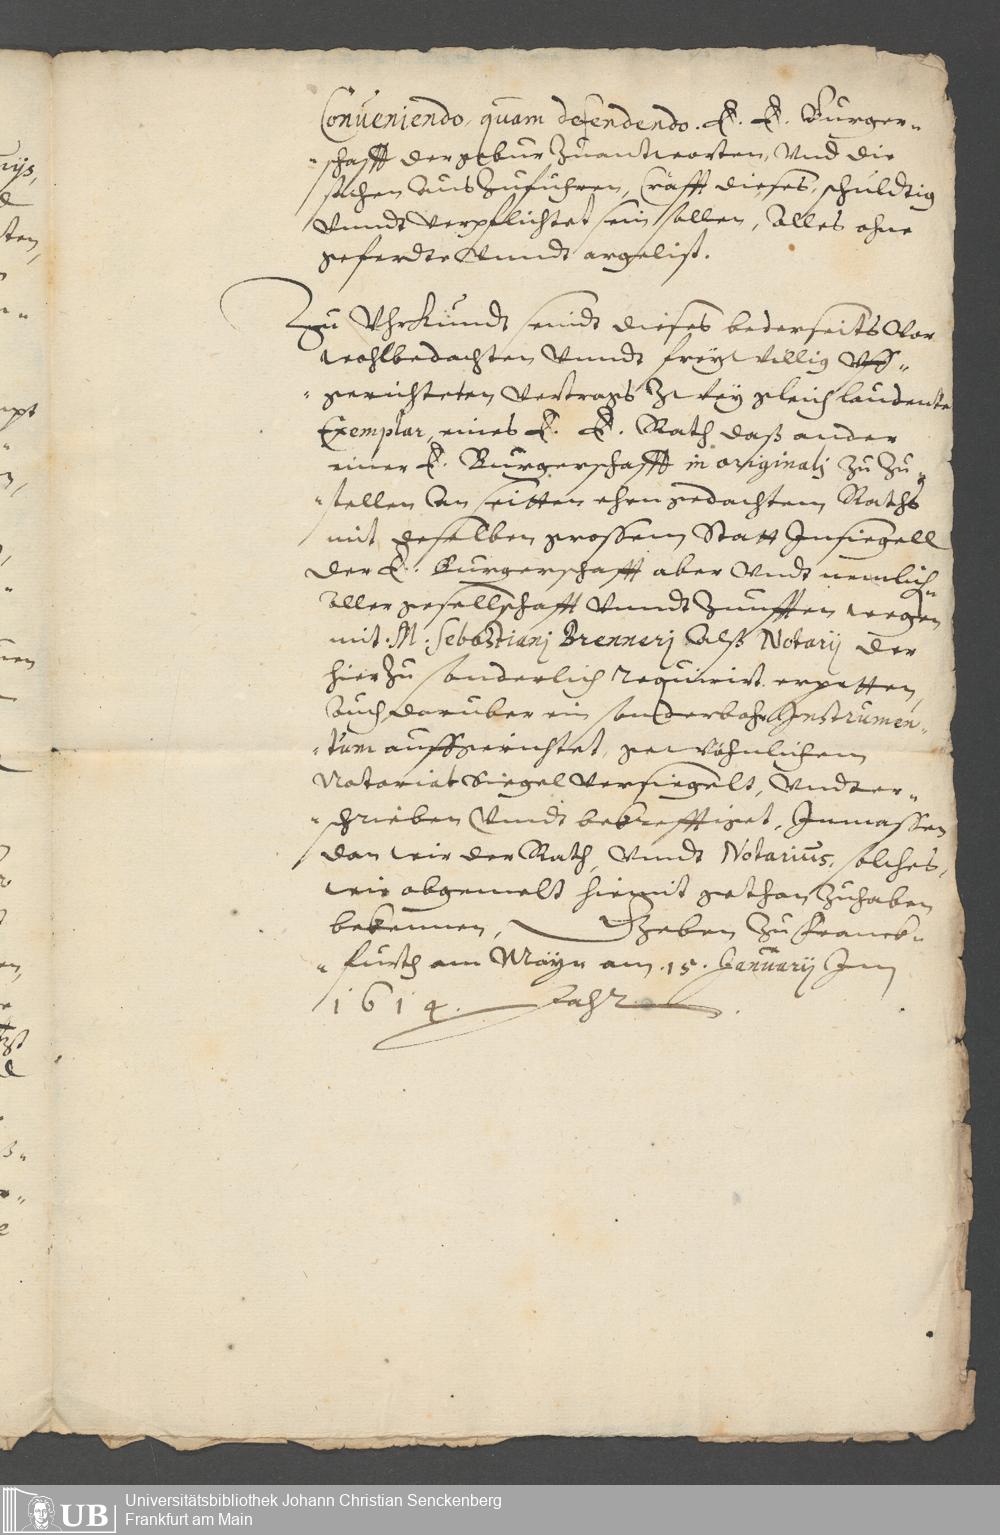 Conueniendo, quam defendendo. E. E. Burger„
„schafft der gebur Zuantworten, Vnd die
sachen aus Zufuhren, Crafft dieses, schuldig
vnndt verpflichtet sein sollen, Alles ohne
geferdte Vnndt argelist.
Zu Uhrkundt seindt dieses bederseits Vor
wohlbedachten Vnndt freywillig Uff„
„gerichteten Vertrags Zwey gleich laudente
Exemplar, eines E. E. Rath daß ander
einer E. Burgerschafft in originalj Zu Zu„
„stellen An seitten ehrngedachtem Raths
mit deselben grossem Statt Insiegell
der E. Burgerschafft aber Vndt nemlich
Aller gesellschafft Vnndt Zunfften wegen
mit M. Sebastianj Brennerj Alß Notarij der
hier Zu sonderlich requirirt erpetten,
Auch daruber ein sonderbahr Instrumen„
„tum auffgerichtet, gewöhnlichem
Notariat Siegel versiegelt, Vndter„
„schrieben Vnndt bekrefftiget, Inmassen
dan wir der Rath, Vnndt Notarius, solches,
wie obgemelt hiemit gethan Zuhaben
bekennen, Geben Zu Franck„
„furth am Mayn am .15. Januarij Im
1614. Jahr.
Universitätsbibliothek Johann Christian Senckenberg
Frankfurt am Main
UB